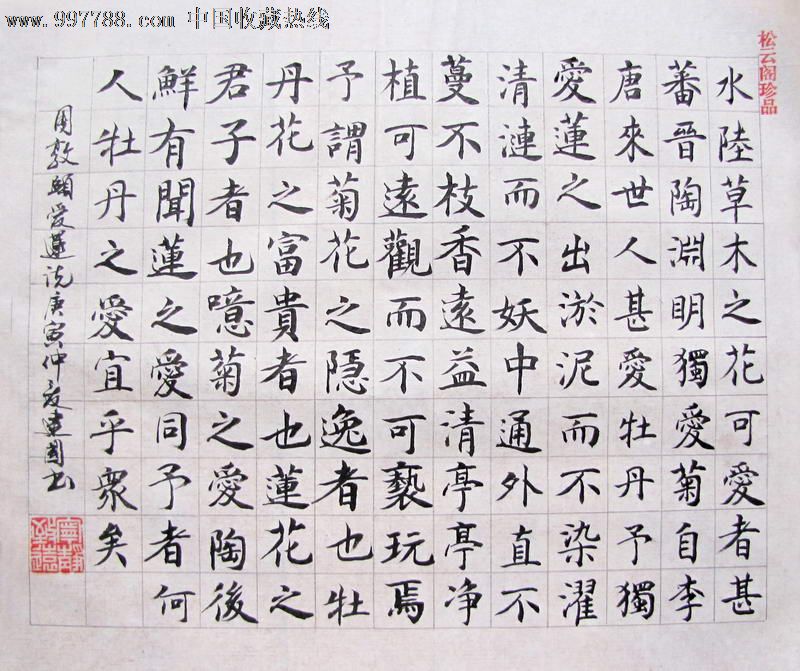 www.997788.com 中国收藏热线
松云阁珍品
水陸草木之花可愛者甚
蕃晉陶淵明獨愛菊自李
唐來世人甚愛牡丹予獨
愛蓮之出淤泥而不染濯
清漣而不妖中通外直不
蔓不枝香遠益清亭亭净
植可遠觀而不可褻玩焉
予謂菊花之隱逸者也牡
丹花之富貴者也蓮花之
君子者也噫菊之愛陶後
鮮有聞蓮之愛同予者何
人牡丹之愛宜乎衆矣
周敦頤愛蓮说庚寅仲夏建国书
寧靜致遠